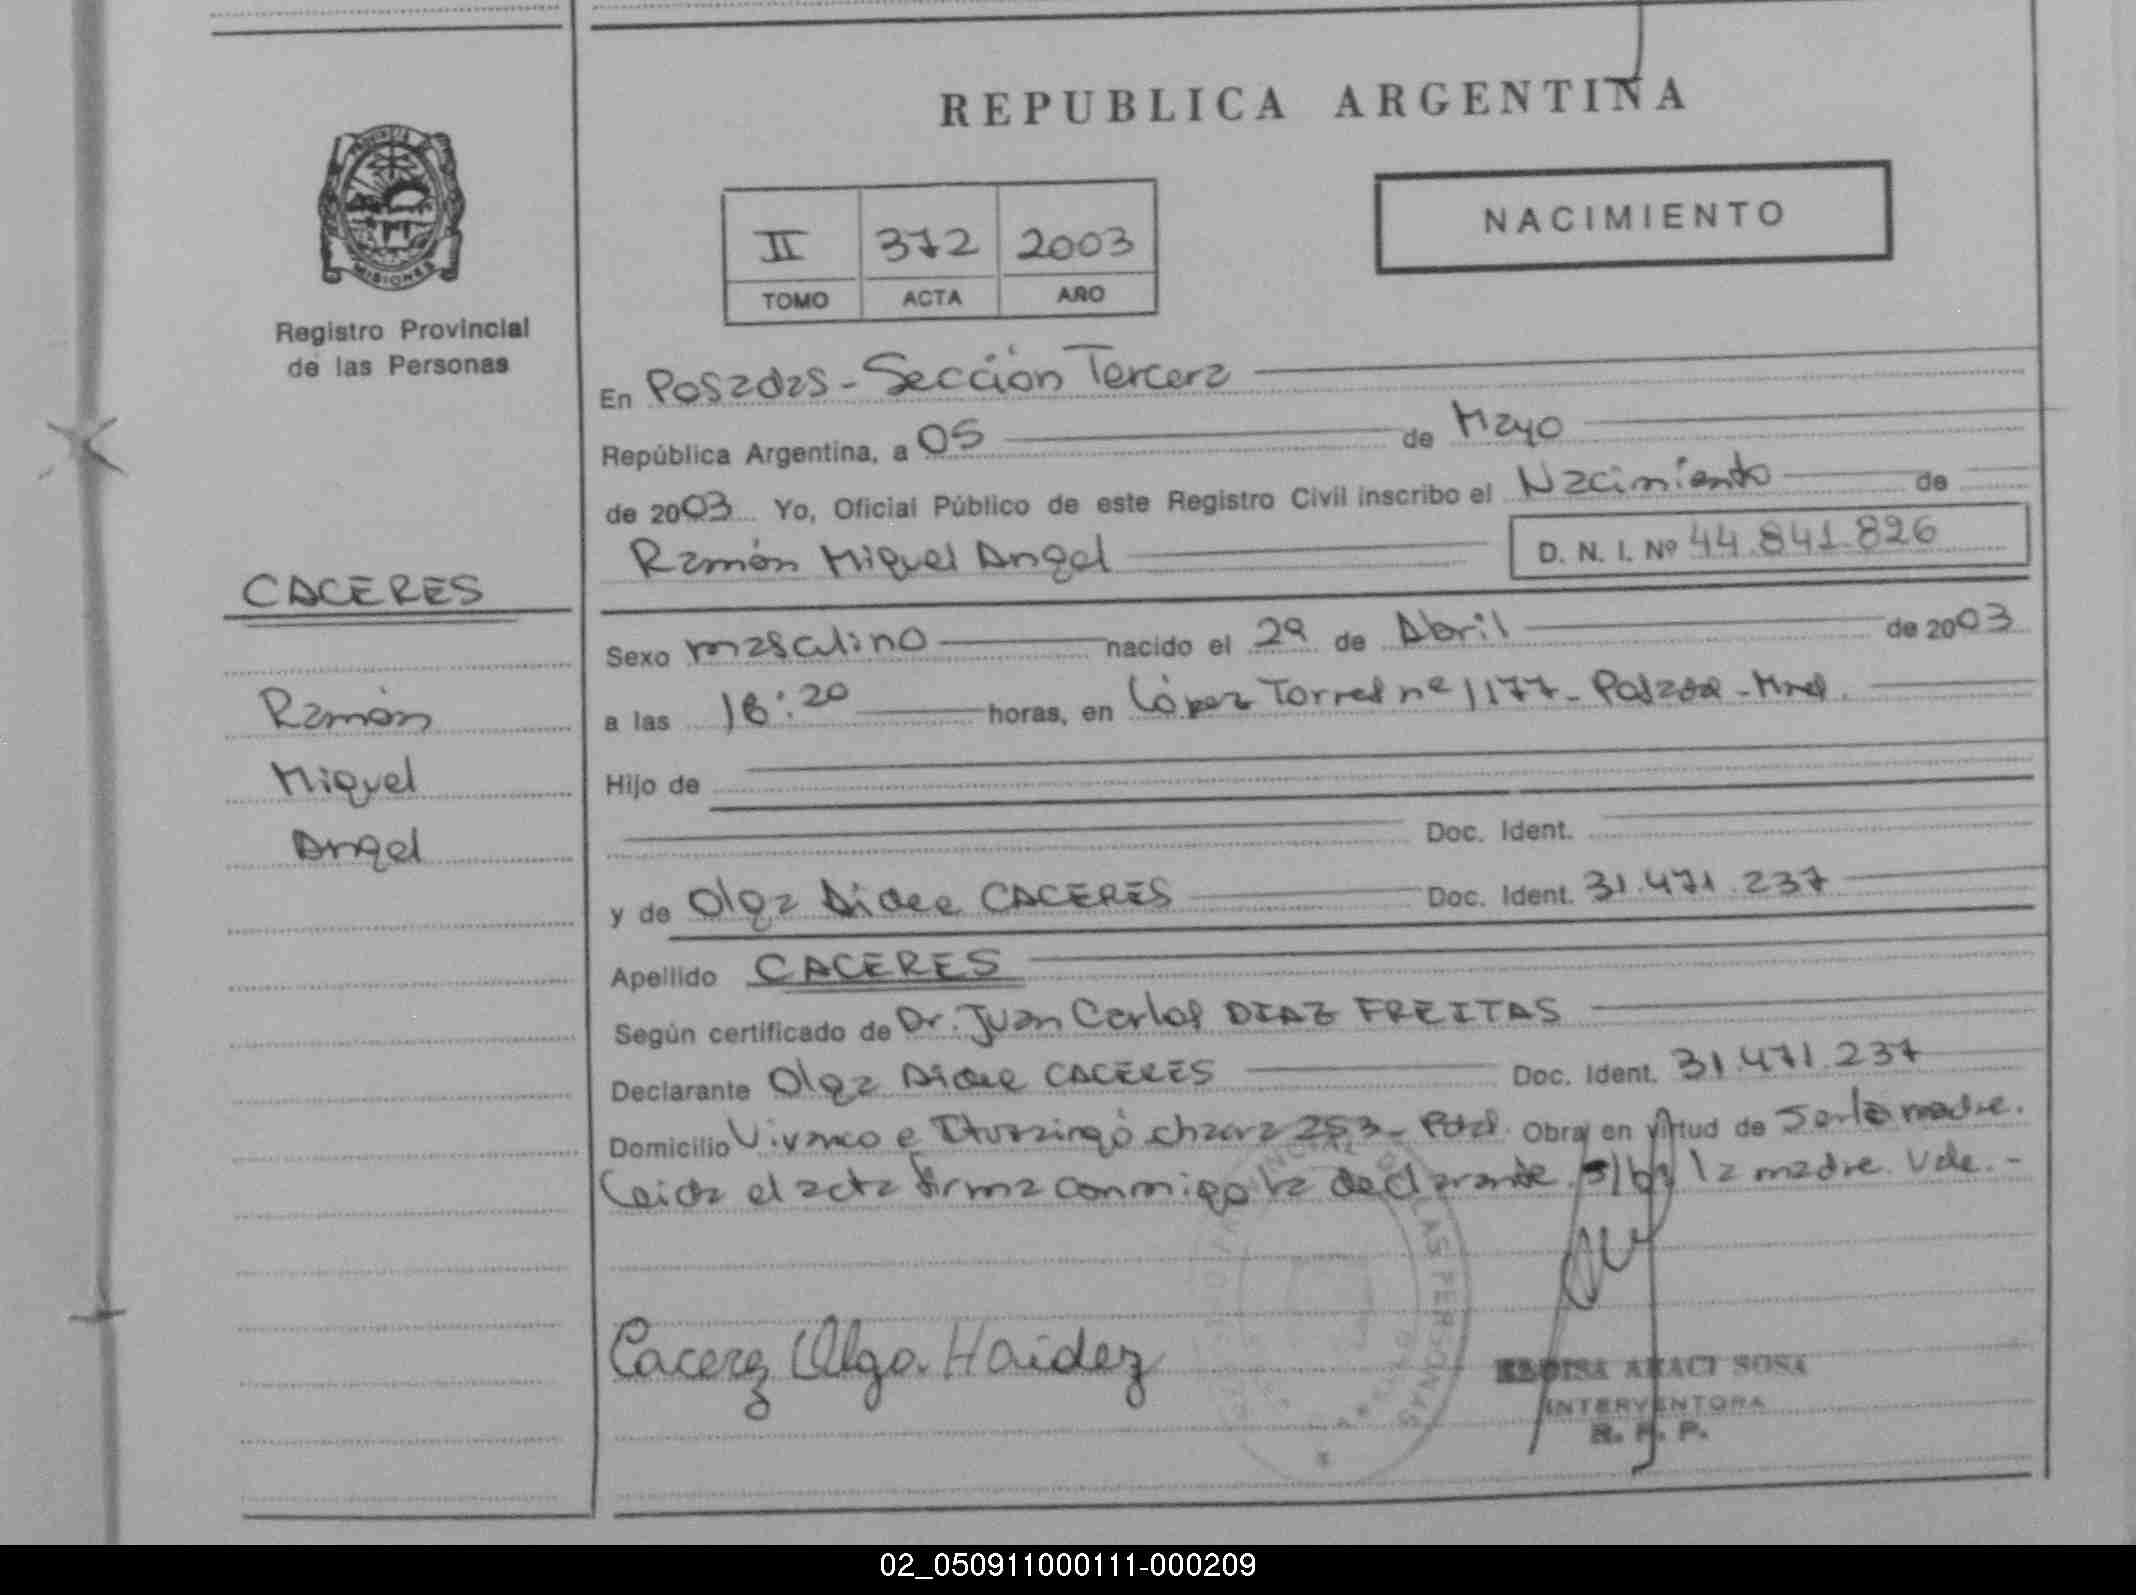 REPUBLICA ARGENTINA
NACIMIENTO
II 372 2003
TOMO ACTA AÑO
Registro Provincial
de las Personas
MISIONES
En Posadas - Sección Tercera
República Argentina, a 05 de Mayo
de 2003 Yo, Oficial Público de este Registro Civil inscribo el Nacimiento de
Ramón Miguel Angel D. N. I. Nº 44.841.826
CACERES
Ramón
Miguel
Angel
Sexo masculino nacido el 29 de Abril de 2003
a las 18:20 horas, en López Torres nº 1177 - Posadas - Mnes.
Hijo de
Doc. Ident.
y de Olga Aidee CACERES Doc. Ident. 31.471.237
Apellido CACERES
Según certificado de Dr. Juan Carlos DIAZ FREITAS
Declarante Olga Aidee CACERES Doc. Ident. 31.471.237
Domicilio Vivanco e Ituzaingó chacra 253 - Pdas. Obra en virtud de Ser la madre.
Leida el acta firma conmigo la declarante. la madre. Vale. -
Cacerez Olga Haidez
ELOISA ARACI SOSA
INTERVENTORA
R. P. P.
LAS PERSONAS
02_050911000111-000209